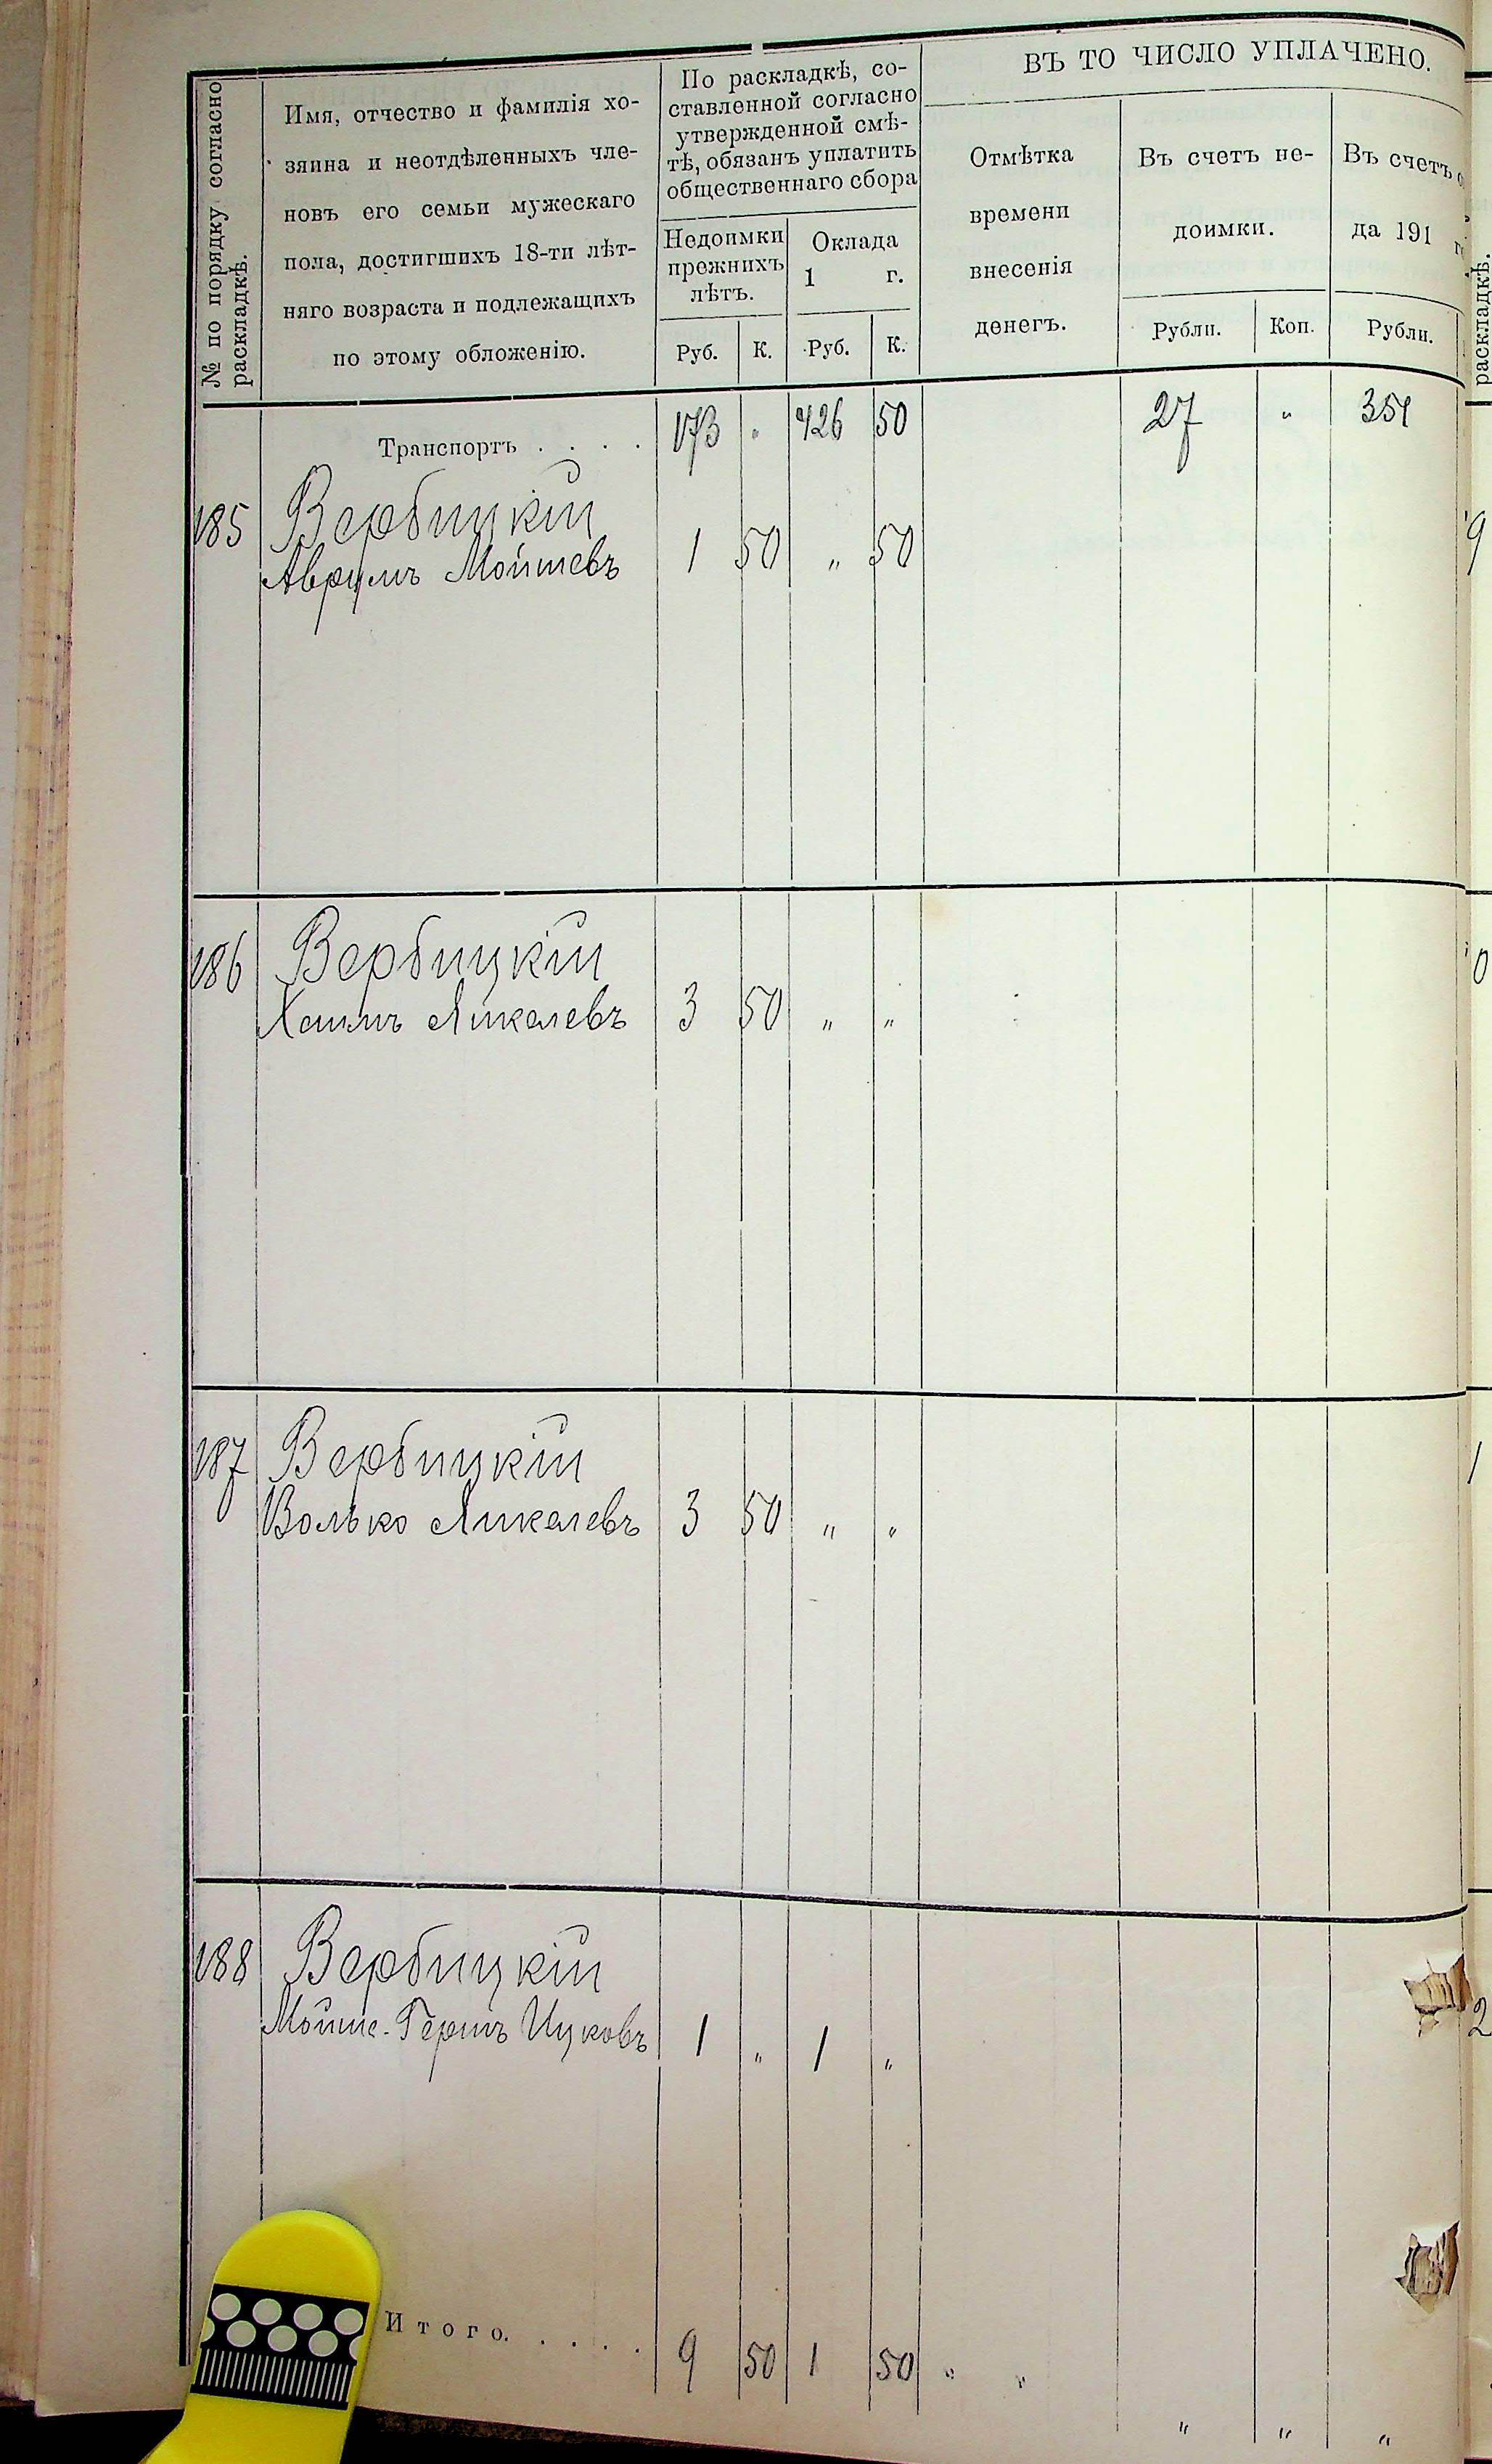 № по порядку согласно
раскладкѣ.
Имя, отчество и фамилія хо-
зяина и неотдѣленныхъ чле-
новъ его семьи мужескаго
пола, достигшихъ 18-ти лѣт-
няго возраста и подлежащихъ
по этому обложенію.
По раскладкѣ, со-
ставленной согласно
утвержденной смѣ-
тѣ, обязанъ уплатить
общественнаго сбора
Недоимки
прежнихъ
лѣтъ.
Оклада
1 г.
Руб. К. Руб. К.
ВЪ ТО ЧИСЛО УПЛАЧЕНО.
Отмѣтка
времени
внесенія
денегъ.
Въ счетъ не-
доимки.
Рубли. Коп.
Въ счетъ о
да 191 г.
Рубли.
раскладкѣ.
Транспортъ . . . . 173 " 426 50 27 " 351
185 Вербицкій
Аврумъ Мойшевъ 1 50 " 50
9
186 Вербицкій
Хаимъ Янкелевъ 3 50 " "
0
187 Вербицкій
Волько Янкелевъ 3 50 " "
1
188 Вербицкій
Мойше-Гершъ Ицковъ 1 " 1 "
2
Итого. . . . . 9 50 1 50 " "
" " "